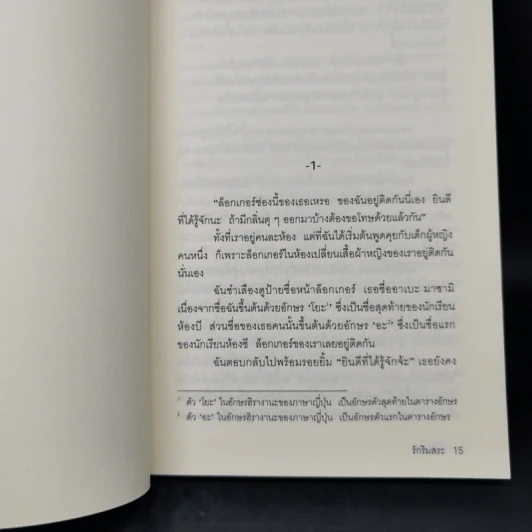 -1-
"ล็อกเกอร์ช่องนี้ของเธอเหรอ ของฉันอยู่ติดกันนี่เอง ยินดี
ที่ได้รู้จักนะ ถ้ามีกลิ่นตุ ๆ ออกมาบ้างต้องขอโทษด้วยแล้วกัน"
ทั้งที่เราอยู่คนละห้อง แต่ที่ฉันได้เริ่มต้นพูดคุยกับเด็กผู้หญิง
คนหนึ่ง ก็เพราะล็อกเกอร์ในห้องเปลี่ยนเสื้อผ้าหญิงของเราอยู่ติดกัน
นั่นเอง
ฉันชำเลืองดูป้ายชื่อหน้าล็อกเกอร์ เธอชื่ออาเบะ มาซามิ
เนื่องจากชื่อฉันขึ้นต้นด้วยอักษร 'โยะ'¹ ซึ่งเป็นชื่อสุดท้ายของนักเรียน
ห้องบี ส่วนชื่อของเธอคนนั้นขึ้นต้นด้วยอักษร 'อะ'² ซึ่งเป็นชื่อแรก
ของนักเรียนห้องซี ล็อกเกอร์ของเราเลยอยู่ติดกัน
ฉันตอบกลับไปพร้อมรอยยิ้ม "ยินดีที่ได้รู้จักจ้ะ" เธอยังคง
¹ ตัว 'โยะ' ในอักษรฮิรางานะของภาษาญี่ปุ่น เป็นอักษรตัวสุดท้ายในตารางอักษร
² ตัว 'อะ' ในอักษรฮิรางานะของภาษาญี่ปุ่น เป็นอักษรตัวแรกในตารางอักษร
รักริมสระ 15